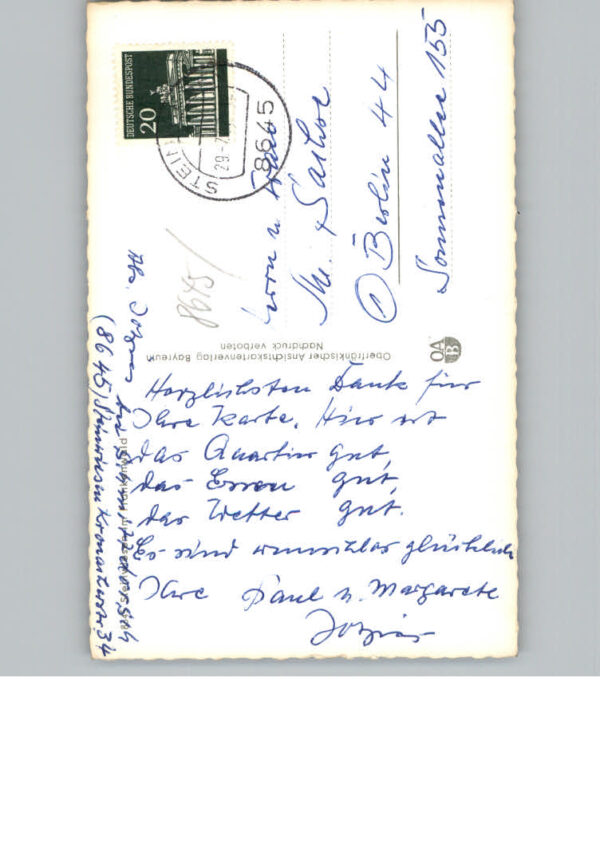 DEUTSCHE BUNDESPOST
20
STEIN
29.-7
8645
Herrn u. Frau
Berlin 44
Sonnenallee 155
8645/
Oberfränkischer Ansichtskartenverlag Bayreuth
Nachdruck verboten
OA
B
Herzlichsten Dank für
Ihre Karte. Hier ist
das Quartier gut,
das Essen gut,
das Wetter gut.
Es sind wunschlos glücklich
Ihre Paul u. Margarete
(8645) Steinwiesen Kronacherstr 34